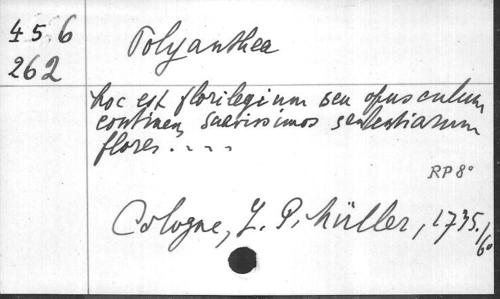 45.6
262
Polyanthea
hoc est florilegium seu opusculum
continens suavissimos sententiarum
flores....
RP 8°
Cologne, L. P. Müller, 1735. 16°